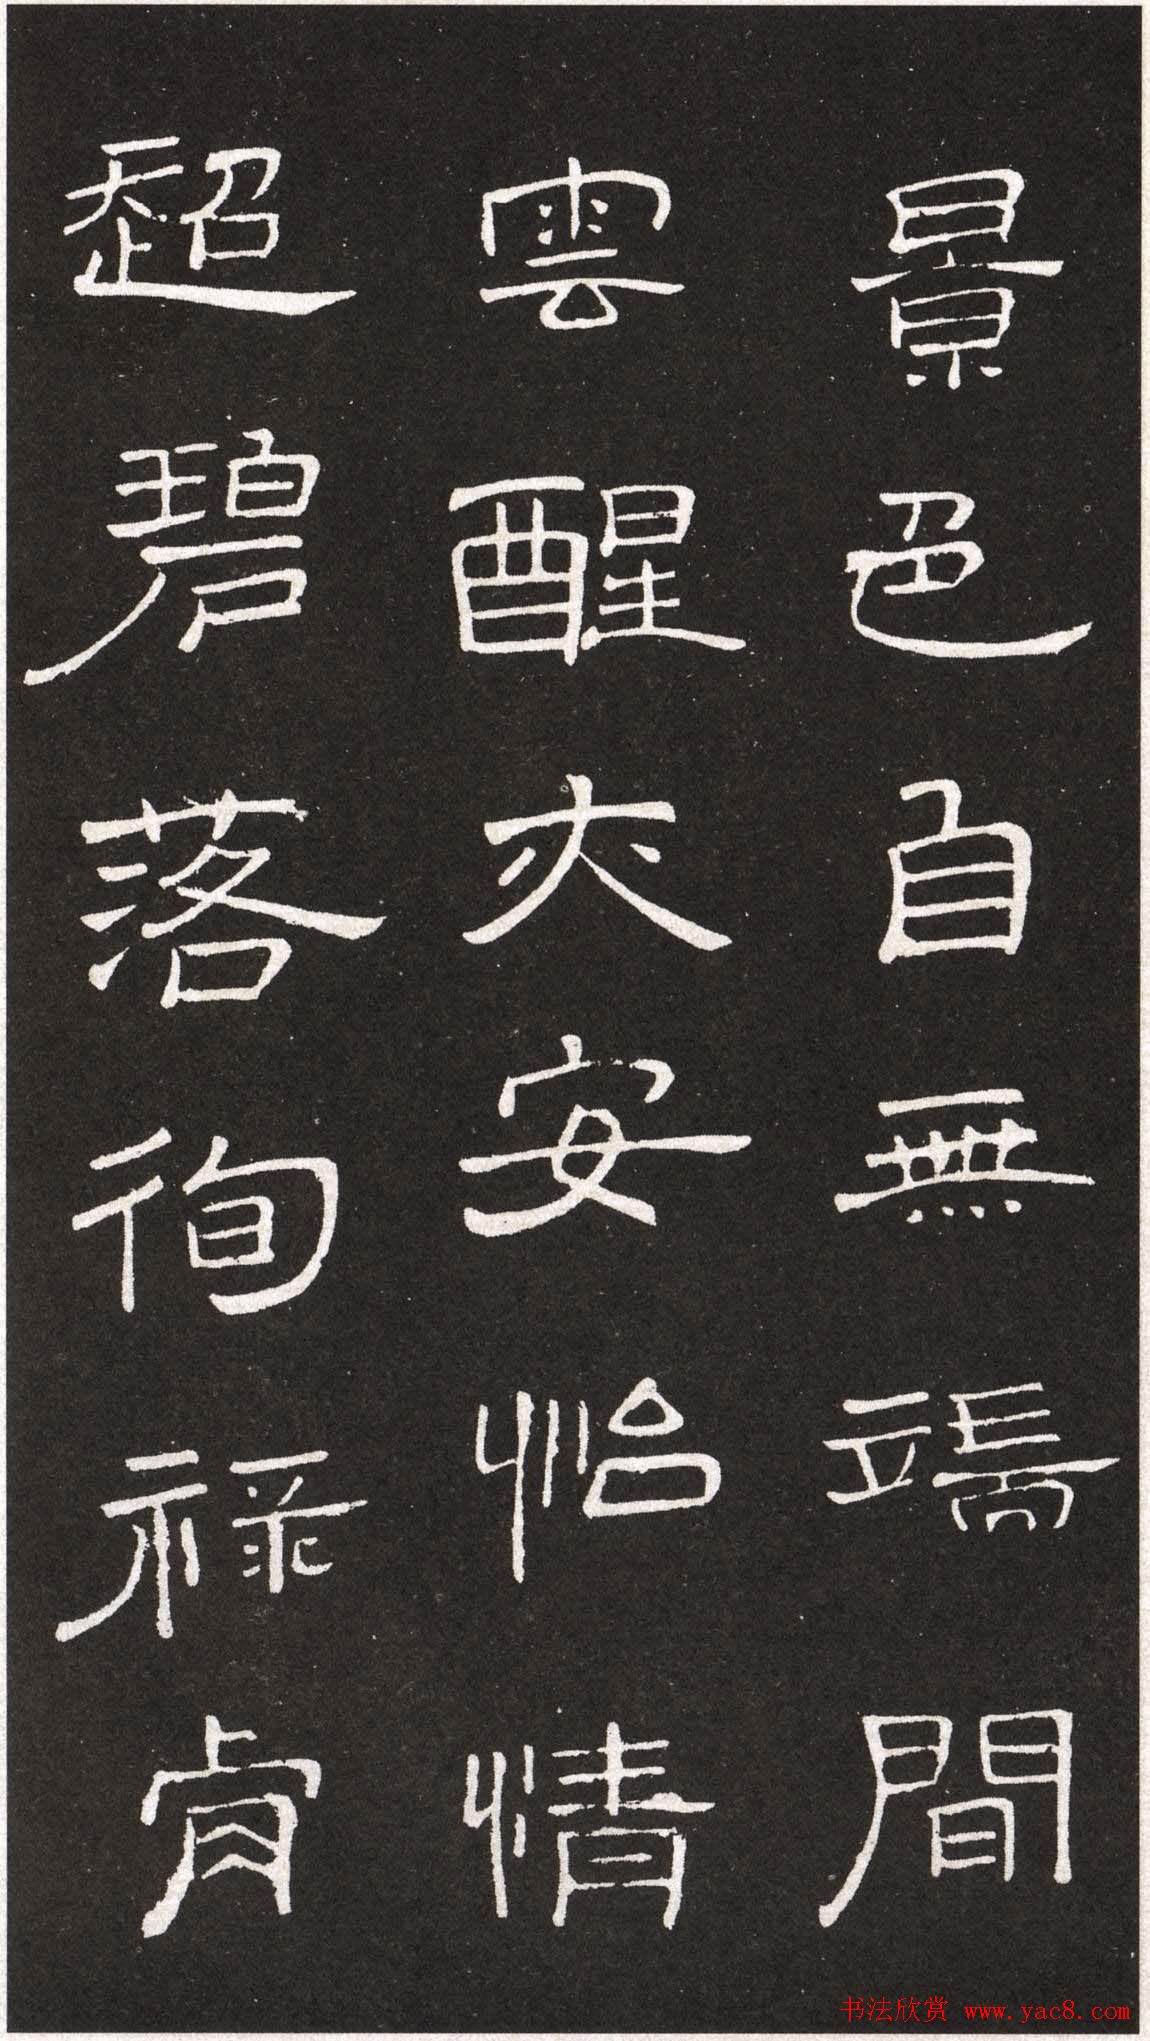 景色自無端間
雲醒亦安怡情
超碧落徇祿肯
书法欣赏 www.yac8.com